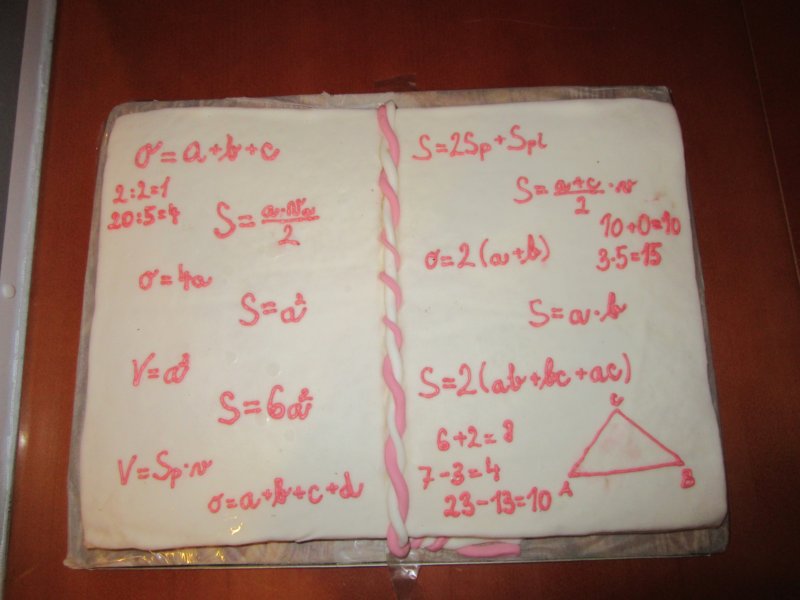 σ=a+b+c
2:2=1
20:5=4
S=\frac{a·v_a}{2}
σ=4a
S=a²
V=a³
S=6a²
V=Sp·v
σ=a+b+c+d
S=2Sp+Spl
S=\frac{a+c}{2}·v
10+0=10
σ=2(a+b)
3·5=15
S=a·b
S=2(ab+bc+ac)
C
6+2=8
7-3=4
A
B
23-13=10